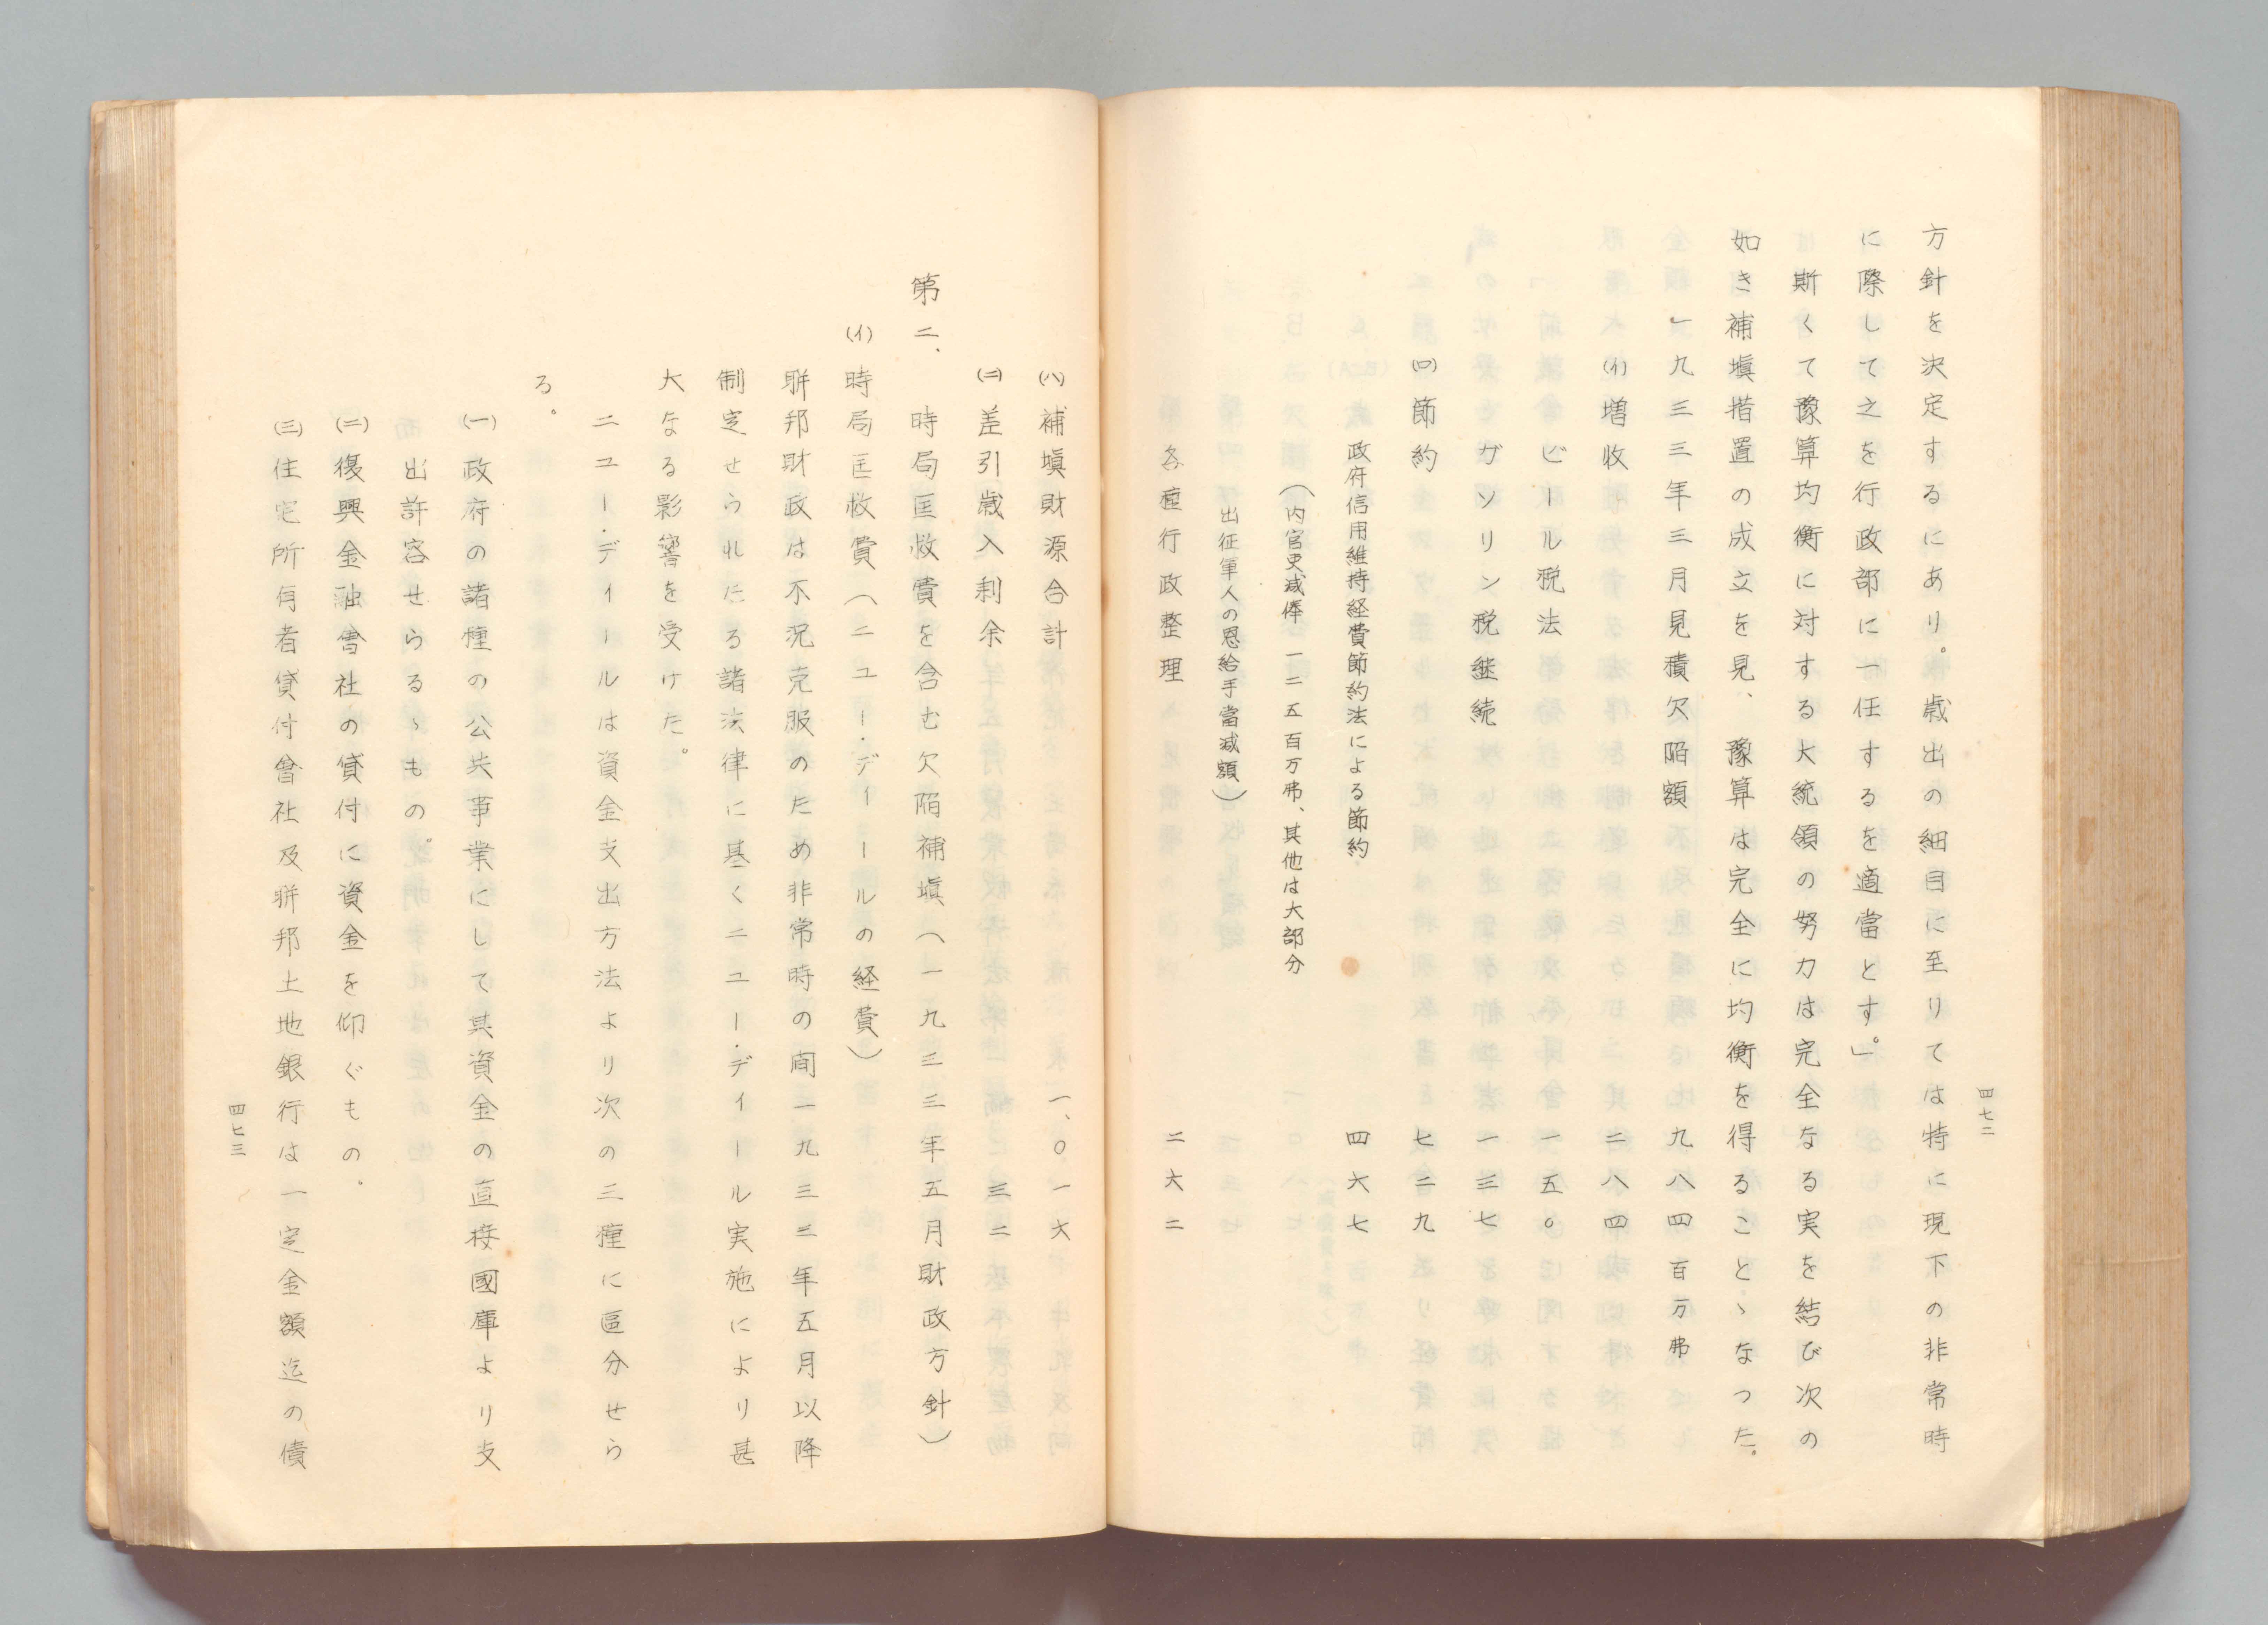 四七二
方針を決定するにあり。歳出の細目に至りては特に現下の非常時
に際して之を行政部に一任するを適當とす。」
斯くて豫算均衡に対する大統領の努力は完全なる実を結び次の
如き補塡措置の成立を見、豫算は完全に均衡を得ることゝなつた。
一九三三年三月見積欠陥額 九八四百万弗
(イ)増收 二八四
ビール税法 一五〇
ガソリン税継続 一三七
(ロ)節約 七二九
政府信用維持経費節約法による節約 四六七
(内官吏減俸 一二五百万弗、其他は大部分
出征軍人の恩給手當減額)
各種行政整理 二六二
(ハ)補塡財源合計 一、〇一六
(ニ)差引歳入剰余 三二
第二、時局匡救費を含む欠陥補塡(一九三三年五月財政方針)
(イ)時局匡救費(ニユー・デイールの経費)
聨邦財政は不況克服のため非常時の間一九三三年五月以降
制定せられたる諸法律に基くニユー・デイール実施により甚
大なる影響を受けた。
ニユー・デイールは資金支出方法より次の三種に區分せら
る。
(一)政府の諸種の公共事業にして其資金の直接國庫より支
出許容せらるゝもの。
(二)復興金融會社の貸付に資金を仰ぐもの。
(三)住宅所有者貸付會社及聨邦土地銀行は一定金額迄の債
四七三